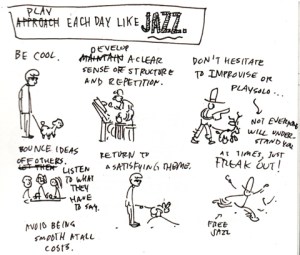 PLAY
APPROACH EACH DAY LIKE JAZZ.
BE COOL.
DEVELOP
MAINTAIN A CLEAR
SENSE OF STRUCTURE
AND REPETITION.
DON'T HESITATE
TO IMPROVISE OR
PLAY SOLO...
NOT EVERYONE
WILL UNDER-
STAND YOU
BOUNCE IDEAS
OF OTHERS.
LISTEN
TO WHAT
THEY
HAVE
TO SAY.
RETURN TO
A SATISFYING THEME.
AT TIMES, JUST
FREAK OUT!
FREE
JAZZ
AVOID BEING
SMOOTH AT ALL
COSTS.